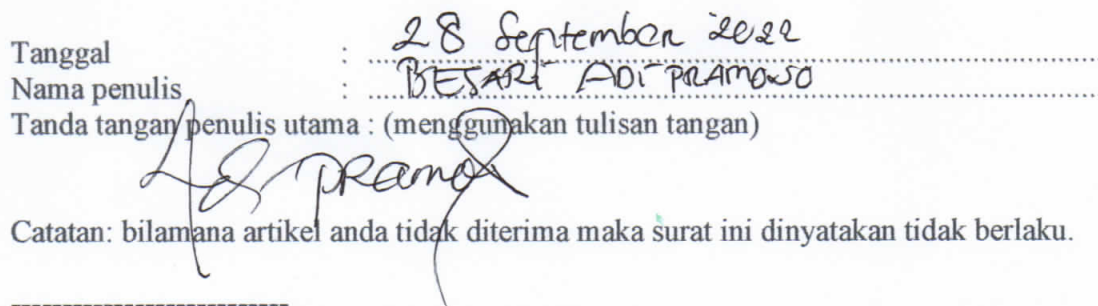 Tanggal : 28 September 2022
Nama penulis : BESARI ADI PRAMONO
Tanda tangan penulis utama : (menggunakan tulisan tangan)
Catatan: bilamana artikel anda tidak diterima maka surat ini dinyatakan tidak berlaku.